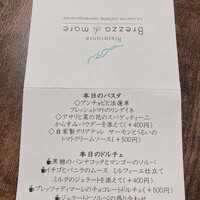 Ristorante
Brezza di mare
La cucina italiana contemporanea
本日のパスタ
◇アンチョビと法蓮草
フレッシュトマトのリングイネ
◇アサリと菜の花のスパゲッティーニ
からすみパウダーを添えて(+400円)
◇自家製タリアテッレ サーモンとうるいの
トマトクリームソース(+500円)
本日のドルチェ
黒糖のパンナコッタとマンゴーのソルベ
イチゴとバニラのムース ミルフィーユ仕立て
ミルクのジェラートを添えて(+400円)
ブレッツァディマーレのチョコレートドルチェ(+500円)
ジェラートとソルベの盛り合わせ